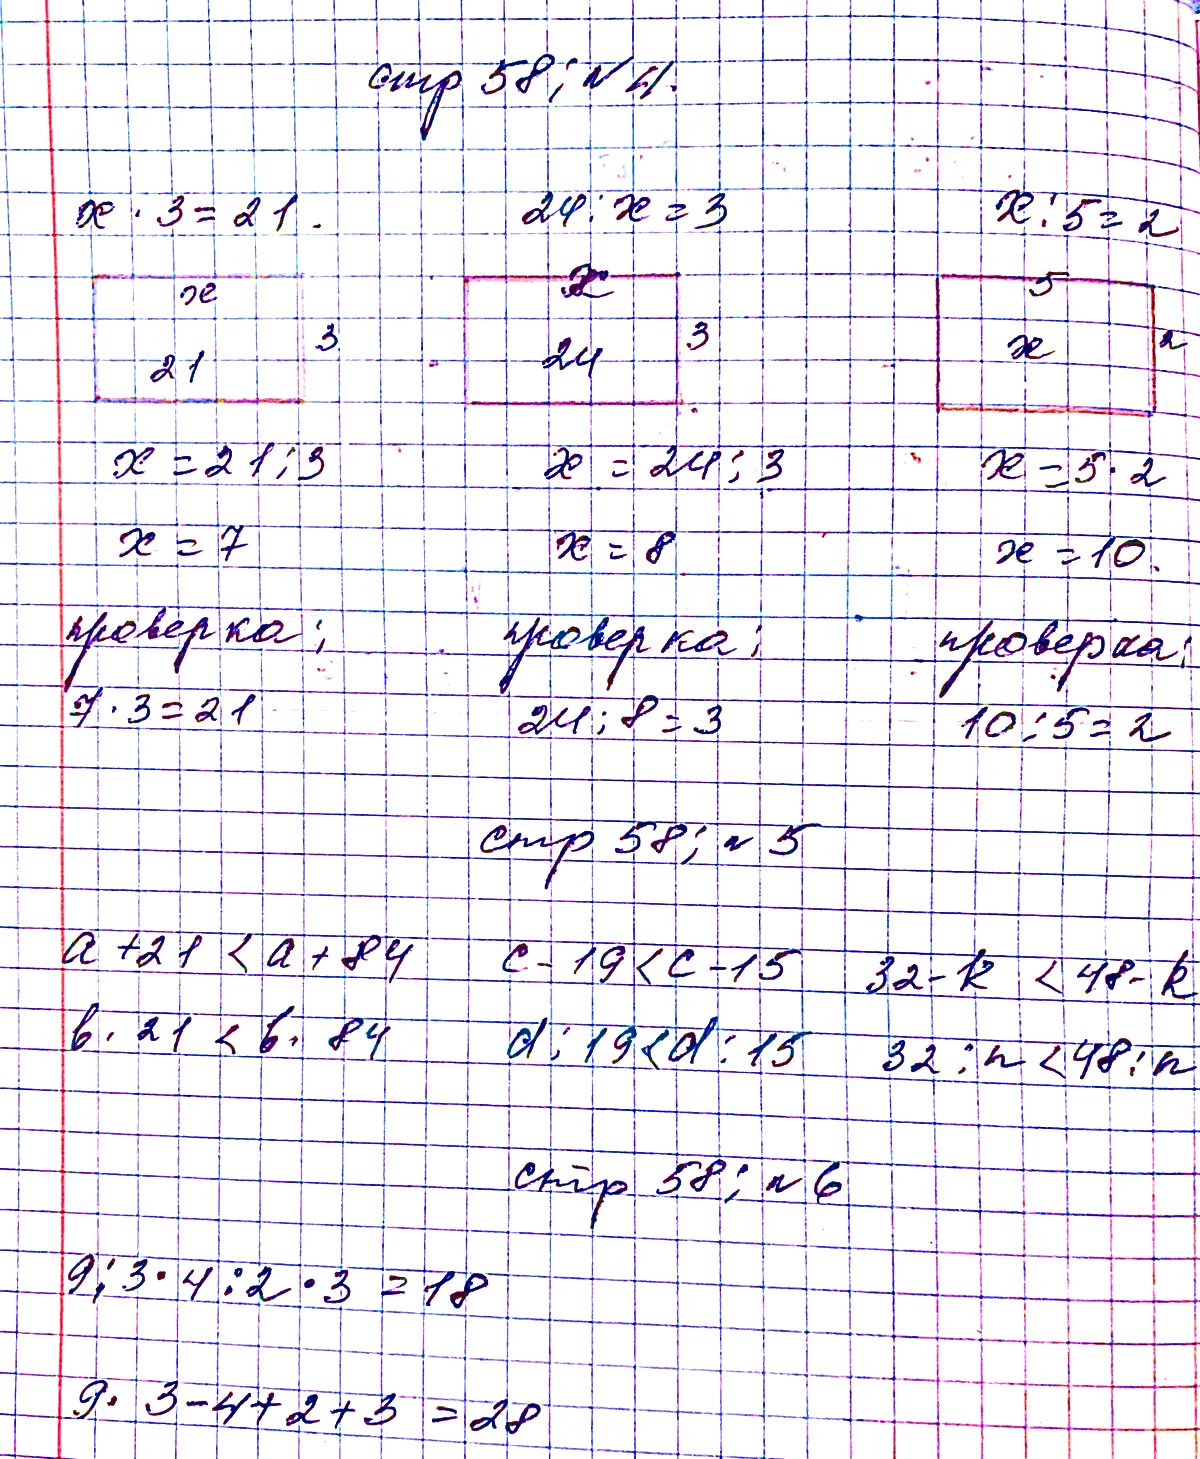 стр 58; № 4.
x · 3 = 21. 24 : x = 3 x : 5 = 2
x x 5
3 3 2
21 24 x
x = 21 : 3 x = 24 : 3 x = 5 · 2
x = 7 x = 8 x = 10.
проверка: проверка: проверка:
7 · 3 = 21 24 : 8 = 3 10 : 5 = 2
стр 58; № 5
a + 21 < a + 84 c - 19 < c - 15 32 - k < 48 - k
b · 21 < b · 84 d : 19 < d : 15 32 : n < 48 : n
стр 58; № 6
9 : 3 · 4 : 2 · 3 = 18
9 · 3 - 4 + 2 + 3 = 28